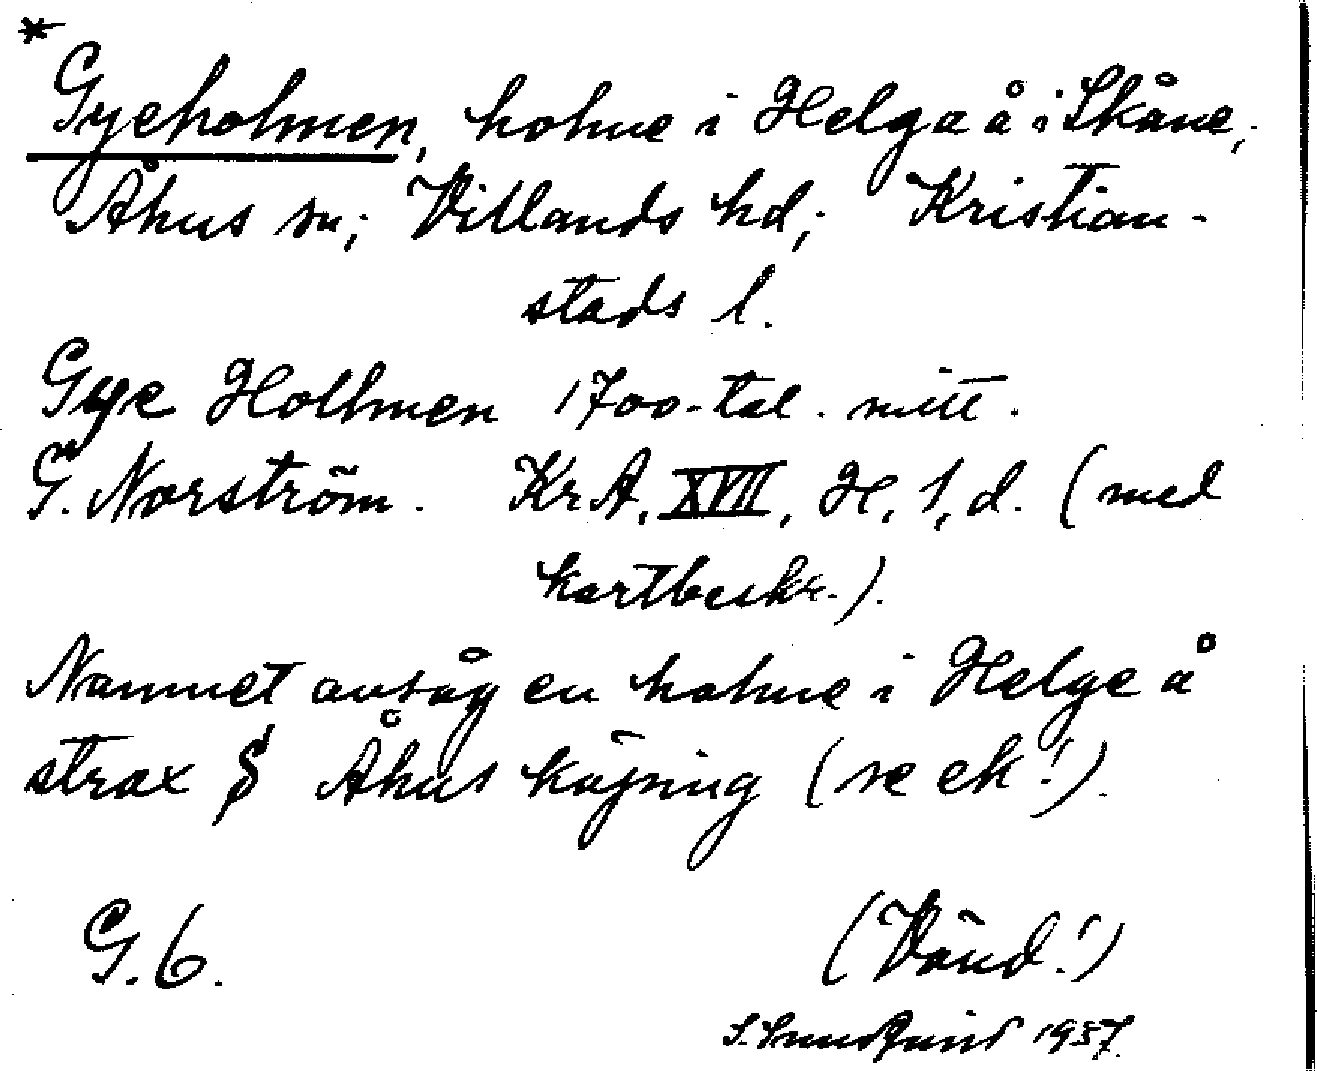 *
Gyeholmen, holme i Helga å i Skåne,
Åhus sn; Villands hd; Kristian-
stads l.
Gye Hollmen 1700-tal. mitt.
G. Norström. KrA, XVII, H, 1, d. (med
kartbeskr.).
Namnet avsåg en holme i Helge å
strax S Åhus köping (se ek!).
G. 6. (Vänd!)
1937.